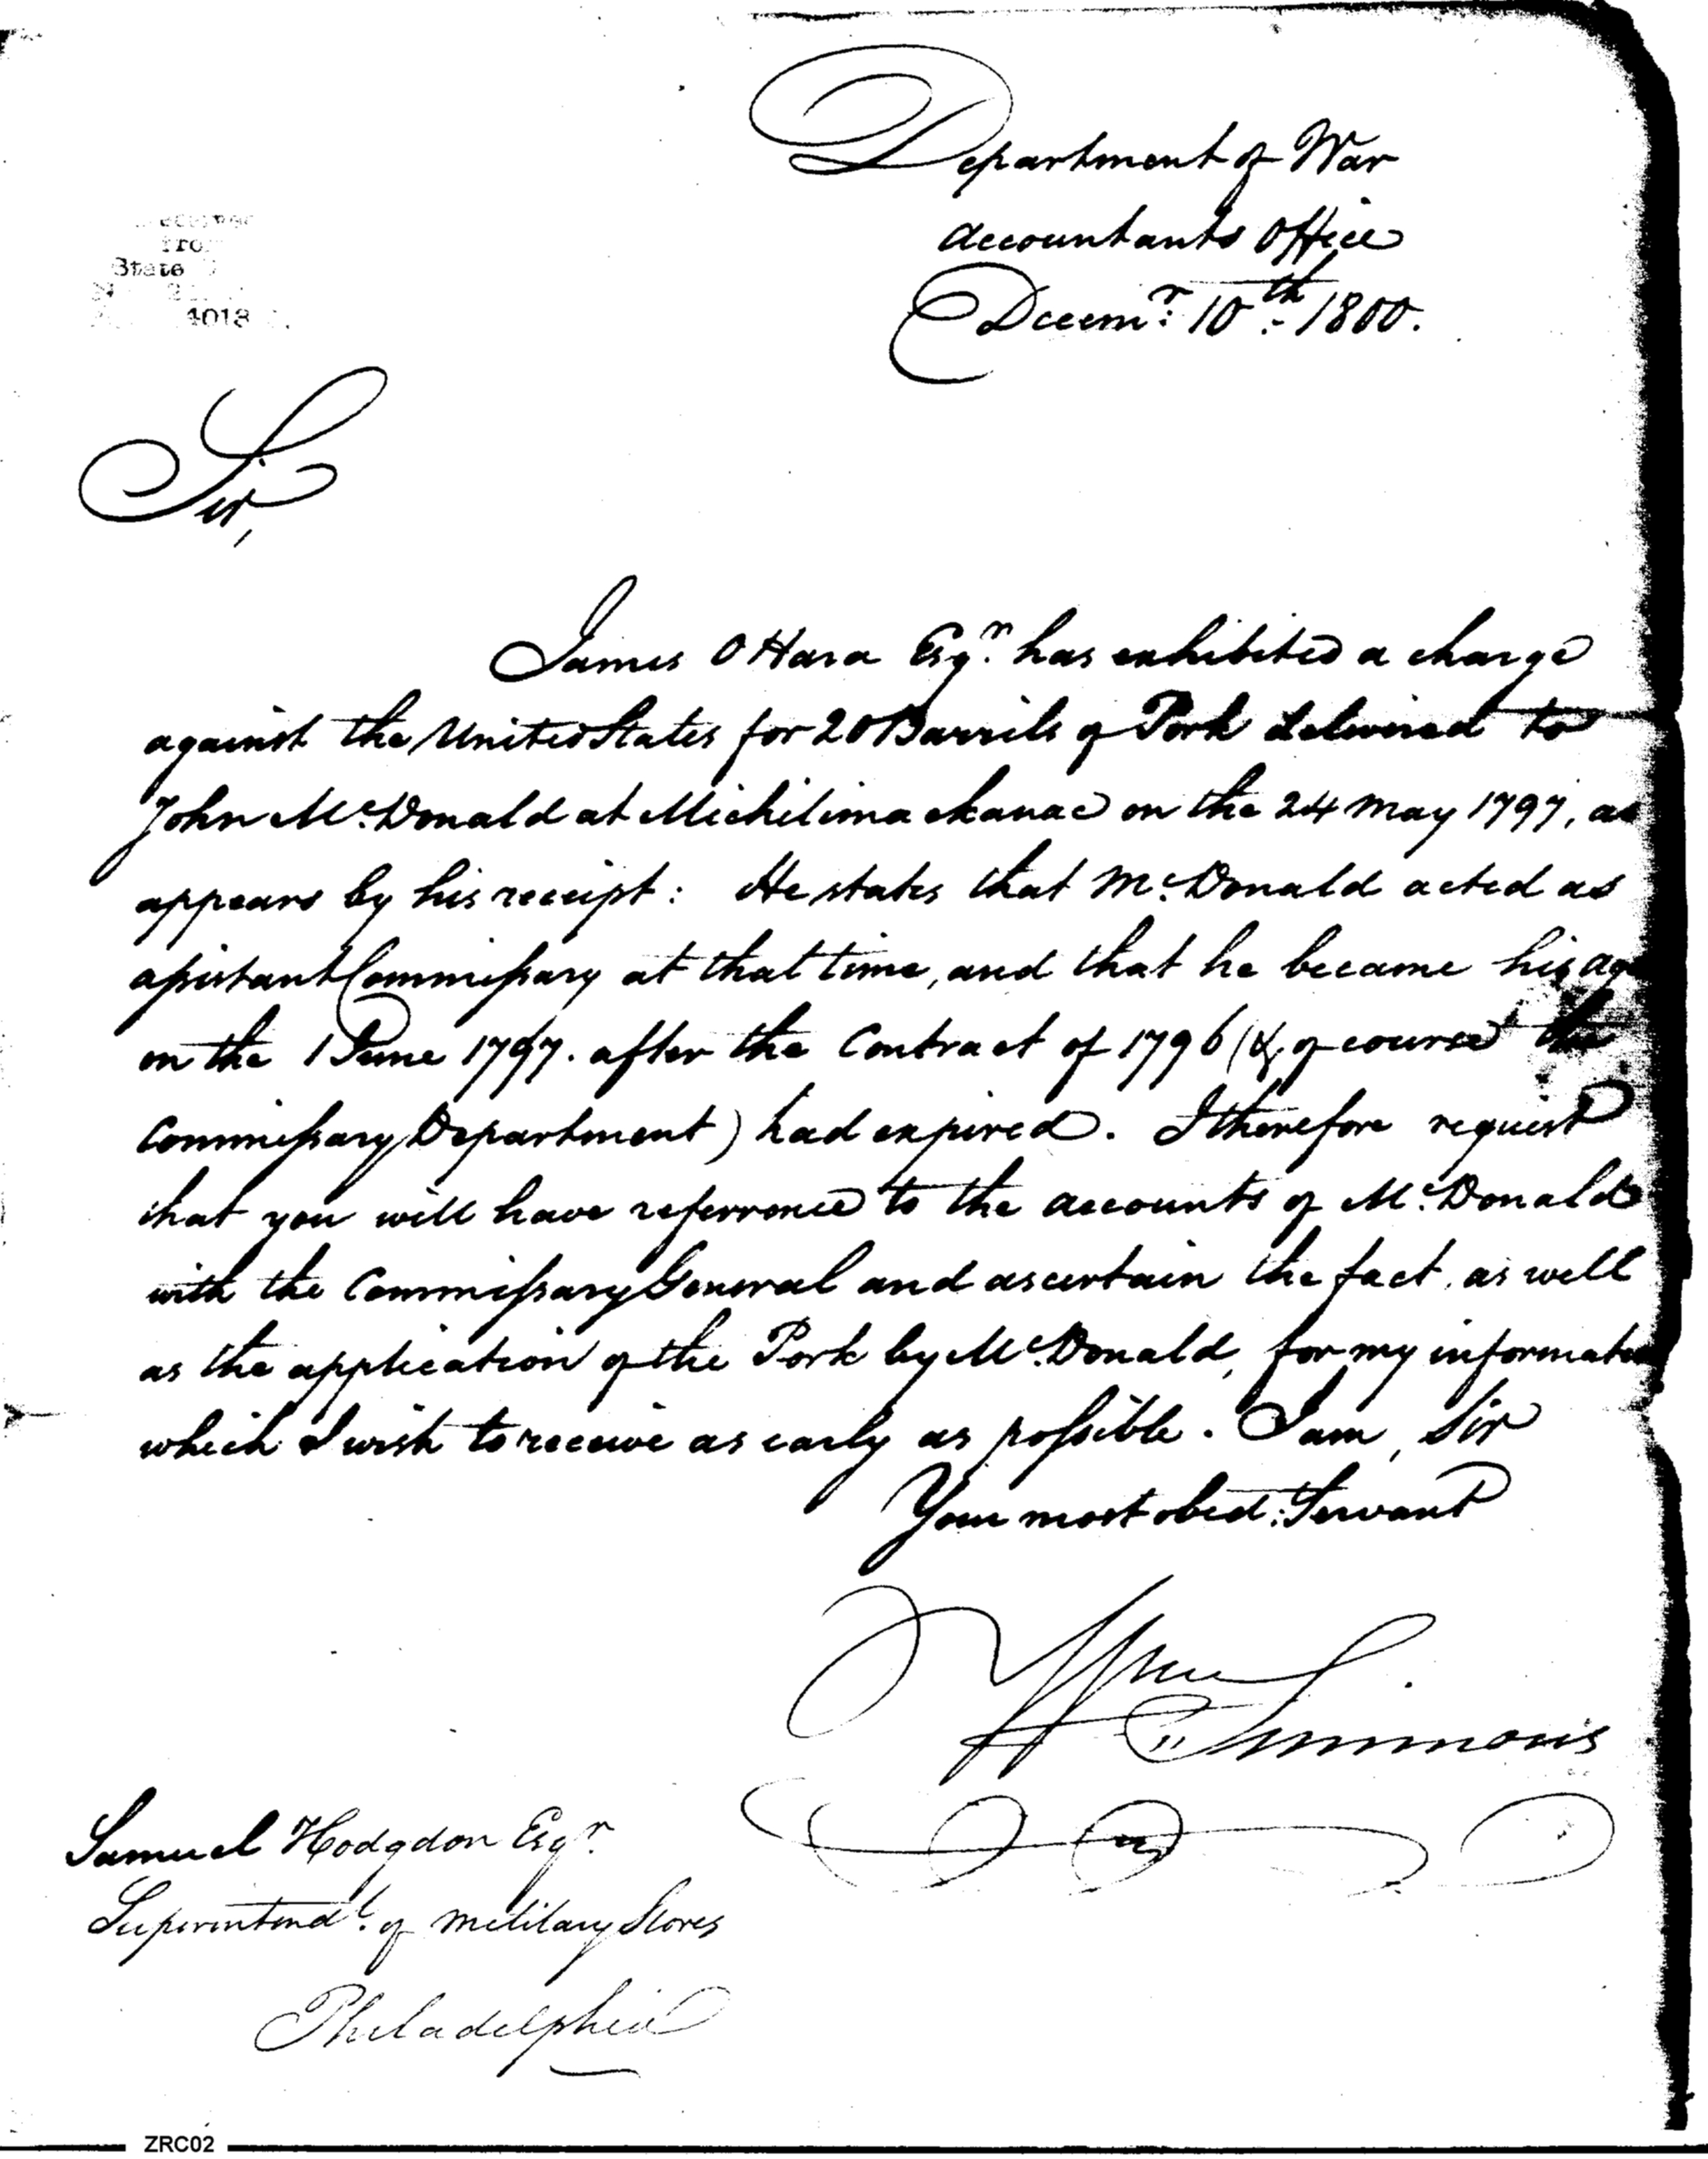 Department of War
Accountants Office
Decemr. 10th. 1800.
from
State
4018
Sir,
James OHara Esqr. has exhibited a charge
against the United States for 20 Barrils of Pork delivered to
John Mc.Donald at Michilimackanac on the 24 May 1797, as
appears by his receipt: He states that Mc.Donald acted as
assistant Commissary at that time, and that he became his
on the 1 June 1797. after the Contract of 1796 (& of course the
Commissary Department) had expired. I therefore request
that you will have referrence to the accounts of Mc.Donald
with the Commissary General and ascertain the fact, as well
as the application of the Pork by Mc.Donald, for my informat
which I wish to receive as early as possible. I am, Sir
Your most obed: Servant
Wm Simmons
Samuel Hodgdon Esqr.
Superintendt. of Military Stores
Philadelphia
ZRC02